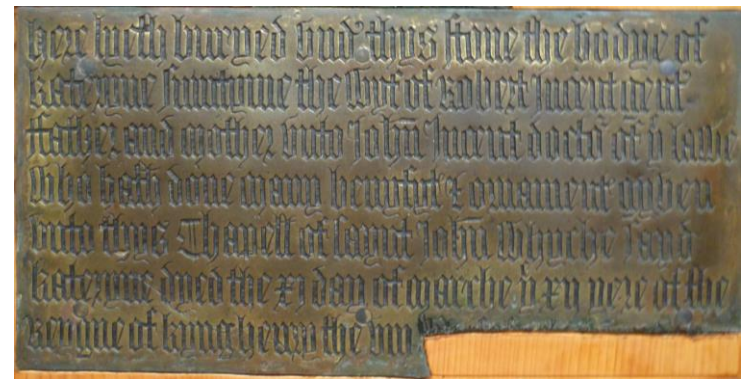 here lyeth buryed und' thys stone the bodye of
Kateryne Smytyme the Wyf of Robert Incent gent
ffather and mother unto John Incent docto' of y lawe
Who hath done many benyfyt & ornament gyven
unto thys Chapell of saynt John Whyche sayd
Kateryne dyed the xj day of marche y xij yere of the
reygne of kyng henry the viij